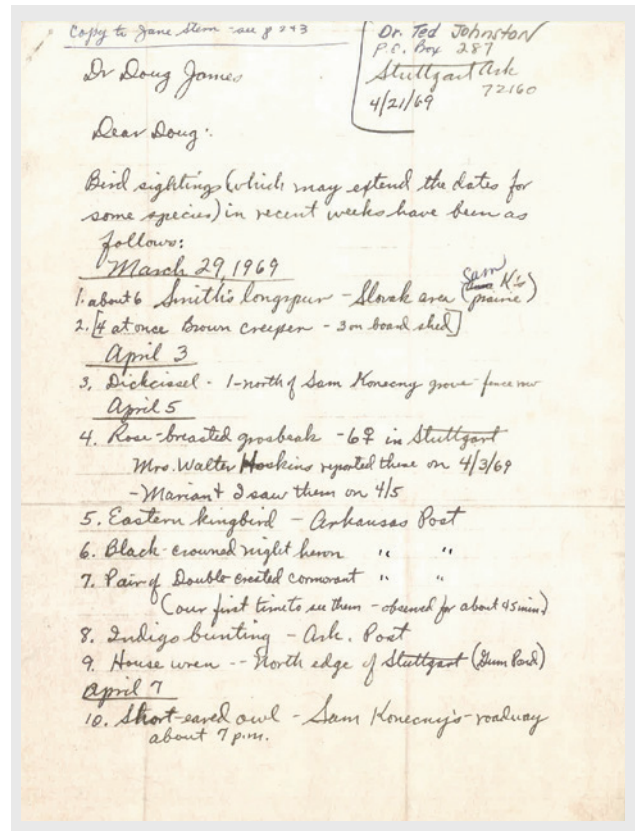 Copy to Jane Stern - see p 243
Dr. Ted Johnston
P.O. Box 287
Stuttgart Ark
72160
4/21/69
Dr Doug James
Dear Doug:
Bird sightings (which may extend the dates for
some species) in recent weeks have been as
follows:
March 29, 1969
1. about 6 Smith's longspur - Slovak area (Sam K's prairie)
2. [4 at once Brown creeper - 3 on board shed]
April 3
3. Dickcissel - 1-north of Sam Konecny grove - fence row
April 5
4. Rose-breasted grosbeak - 6♀ in Stuttgart
Mrs. Walter Hoskins reported these on 4/3/69
- Marian & I saw them on 4/5
5. Eastern kingbird - Arkansas Post
6. Black-crowned night heron " "
7. Pair of Double crested cormorant " "
(our first time to see them - observed for about 45 min.)
8. Indigo bunting - Ark. Post
9. House wren -- North edge of Stuttgart (Gum Pond)
April 7
10. Short-eared owl - Sam Konecny's - roadway
about 7 p.m.